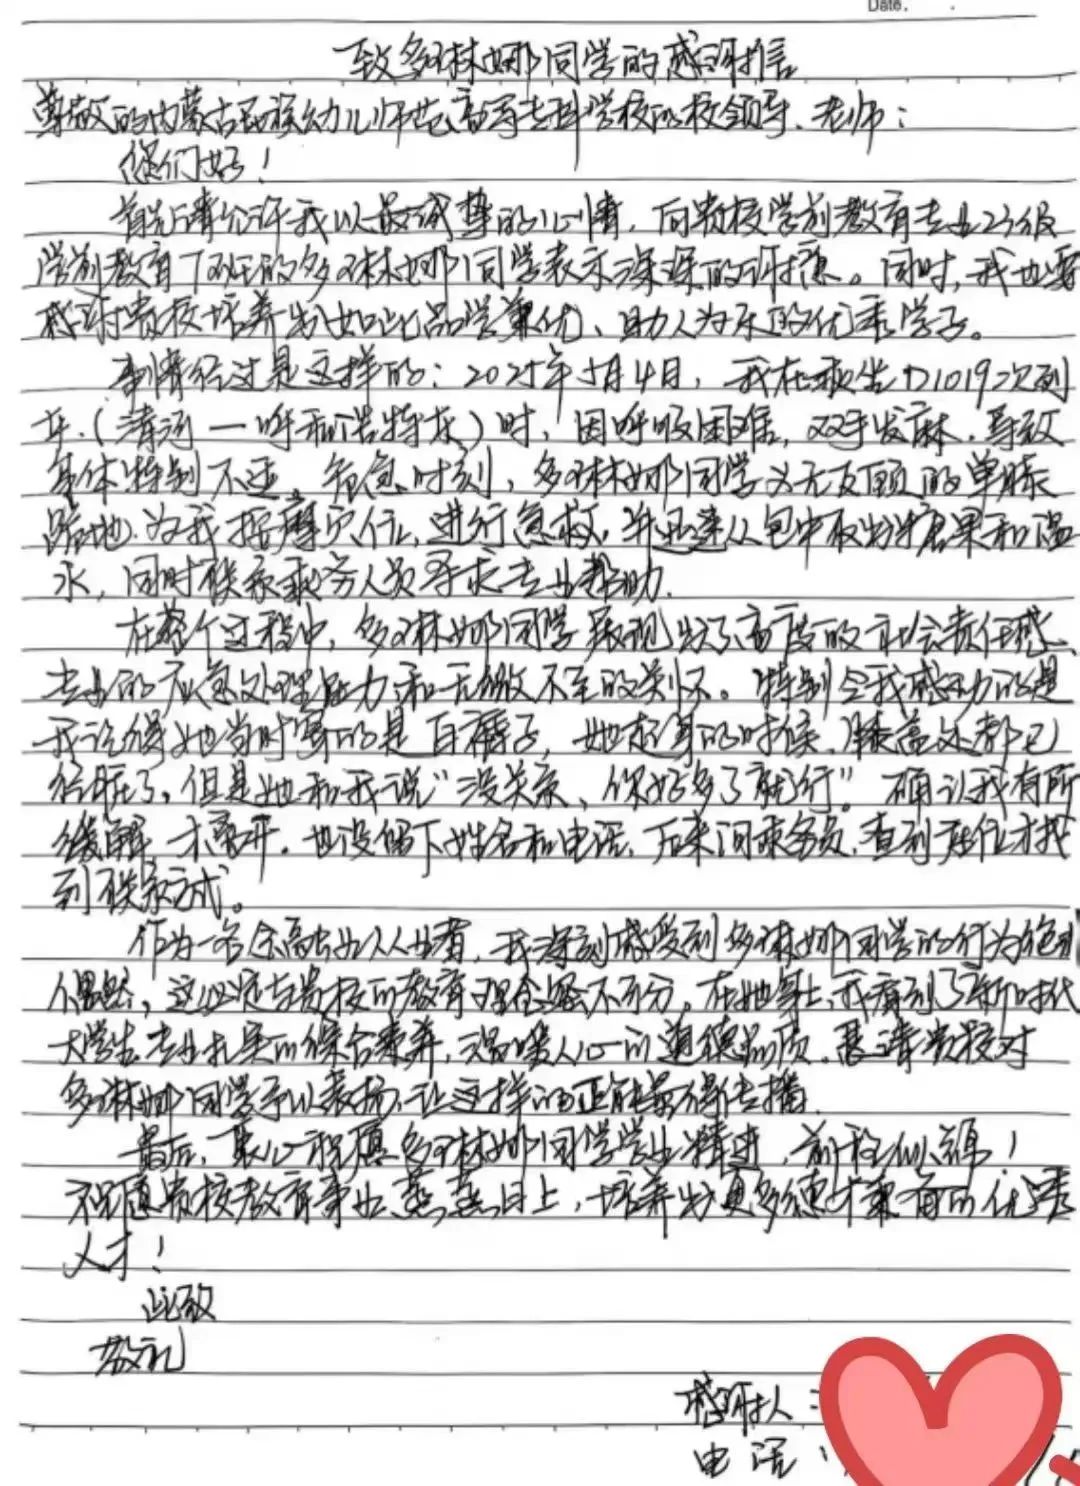 Date.
致多琳娜同学的感谢信
尊敬的内蒙古民族幼儿师范高等专科学校的校领导、老师：
您们好！
首先请允许我以最诚挚的心情，向贵校学前教育专业23级
学前教育丁班的多琳娜同学表示深深的谢意。同时，我也要
感谢贵校培养出如此品学兼优、助人为乐的优秀学子。
事情经过是这样的：2025年5月4日，我在乘坐D1019次列
车（清河—呼和浩特东）时，因呼吸困难，双手发麻，导致
身体特别不适。危急时刻，多琳娜同学义无反顾的单膝
跪地，为我按摩穴位，进行急救，并迅速从包中取出糖果和温
水，同时联系乘务人员寻求专业帮助。
在整个过程中，多琳娜同学展现出了高度的社会责任感、
专业的应急处理能力和无微不至的关怀。特别令我感动的是
我记得她当时穿的是白裤子，她起身的时候，膝盖处都已
经脏了，但是她和我说“没关系，你好多了就行”。确认我有所
缓解，才离开。也没留下姓名和电话，后来问乘务员，查到座位才找
到联系方式。
作为一名企高专业从业者，我深刻感受到多琳娜同学的行为绝非
偶然，这必定与贵校的教育理念密不可分。在她身上，我看到了新时代
大学生专业扎实的综合素养，温暖人心的道德品质。恳请贵校对
多琳娜同学予以表扬，让这样的正能量得传播。
最后，衷心祝愿多琳娜同学学业精进，前程似锦！
祝愿贵校教育事业蒸蒸日上，培养出更多德才兼备的优秀
人才！
此致
敬礼
感谢人：
电话：